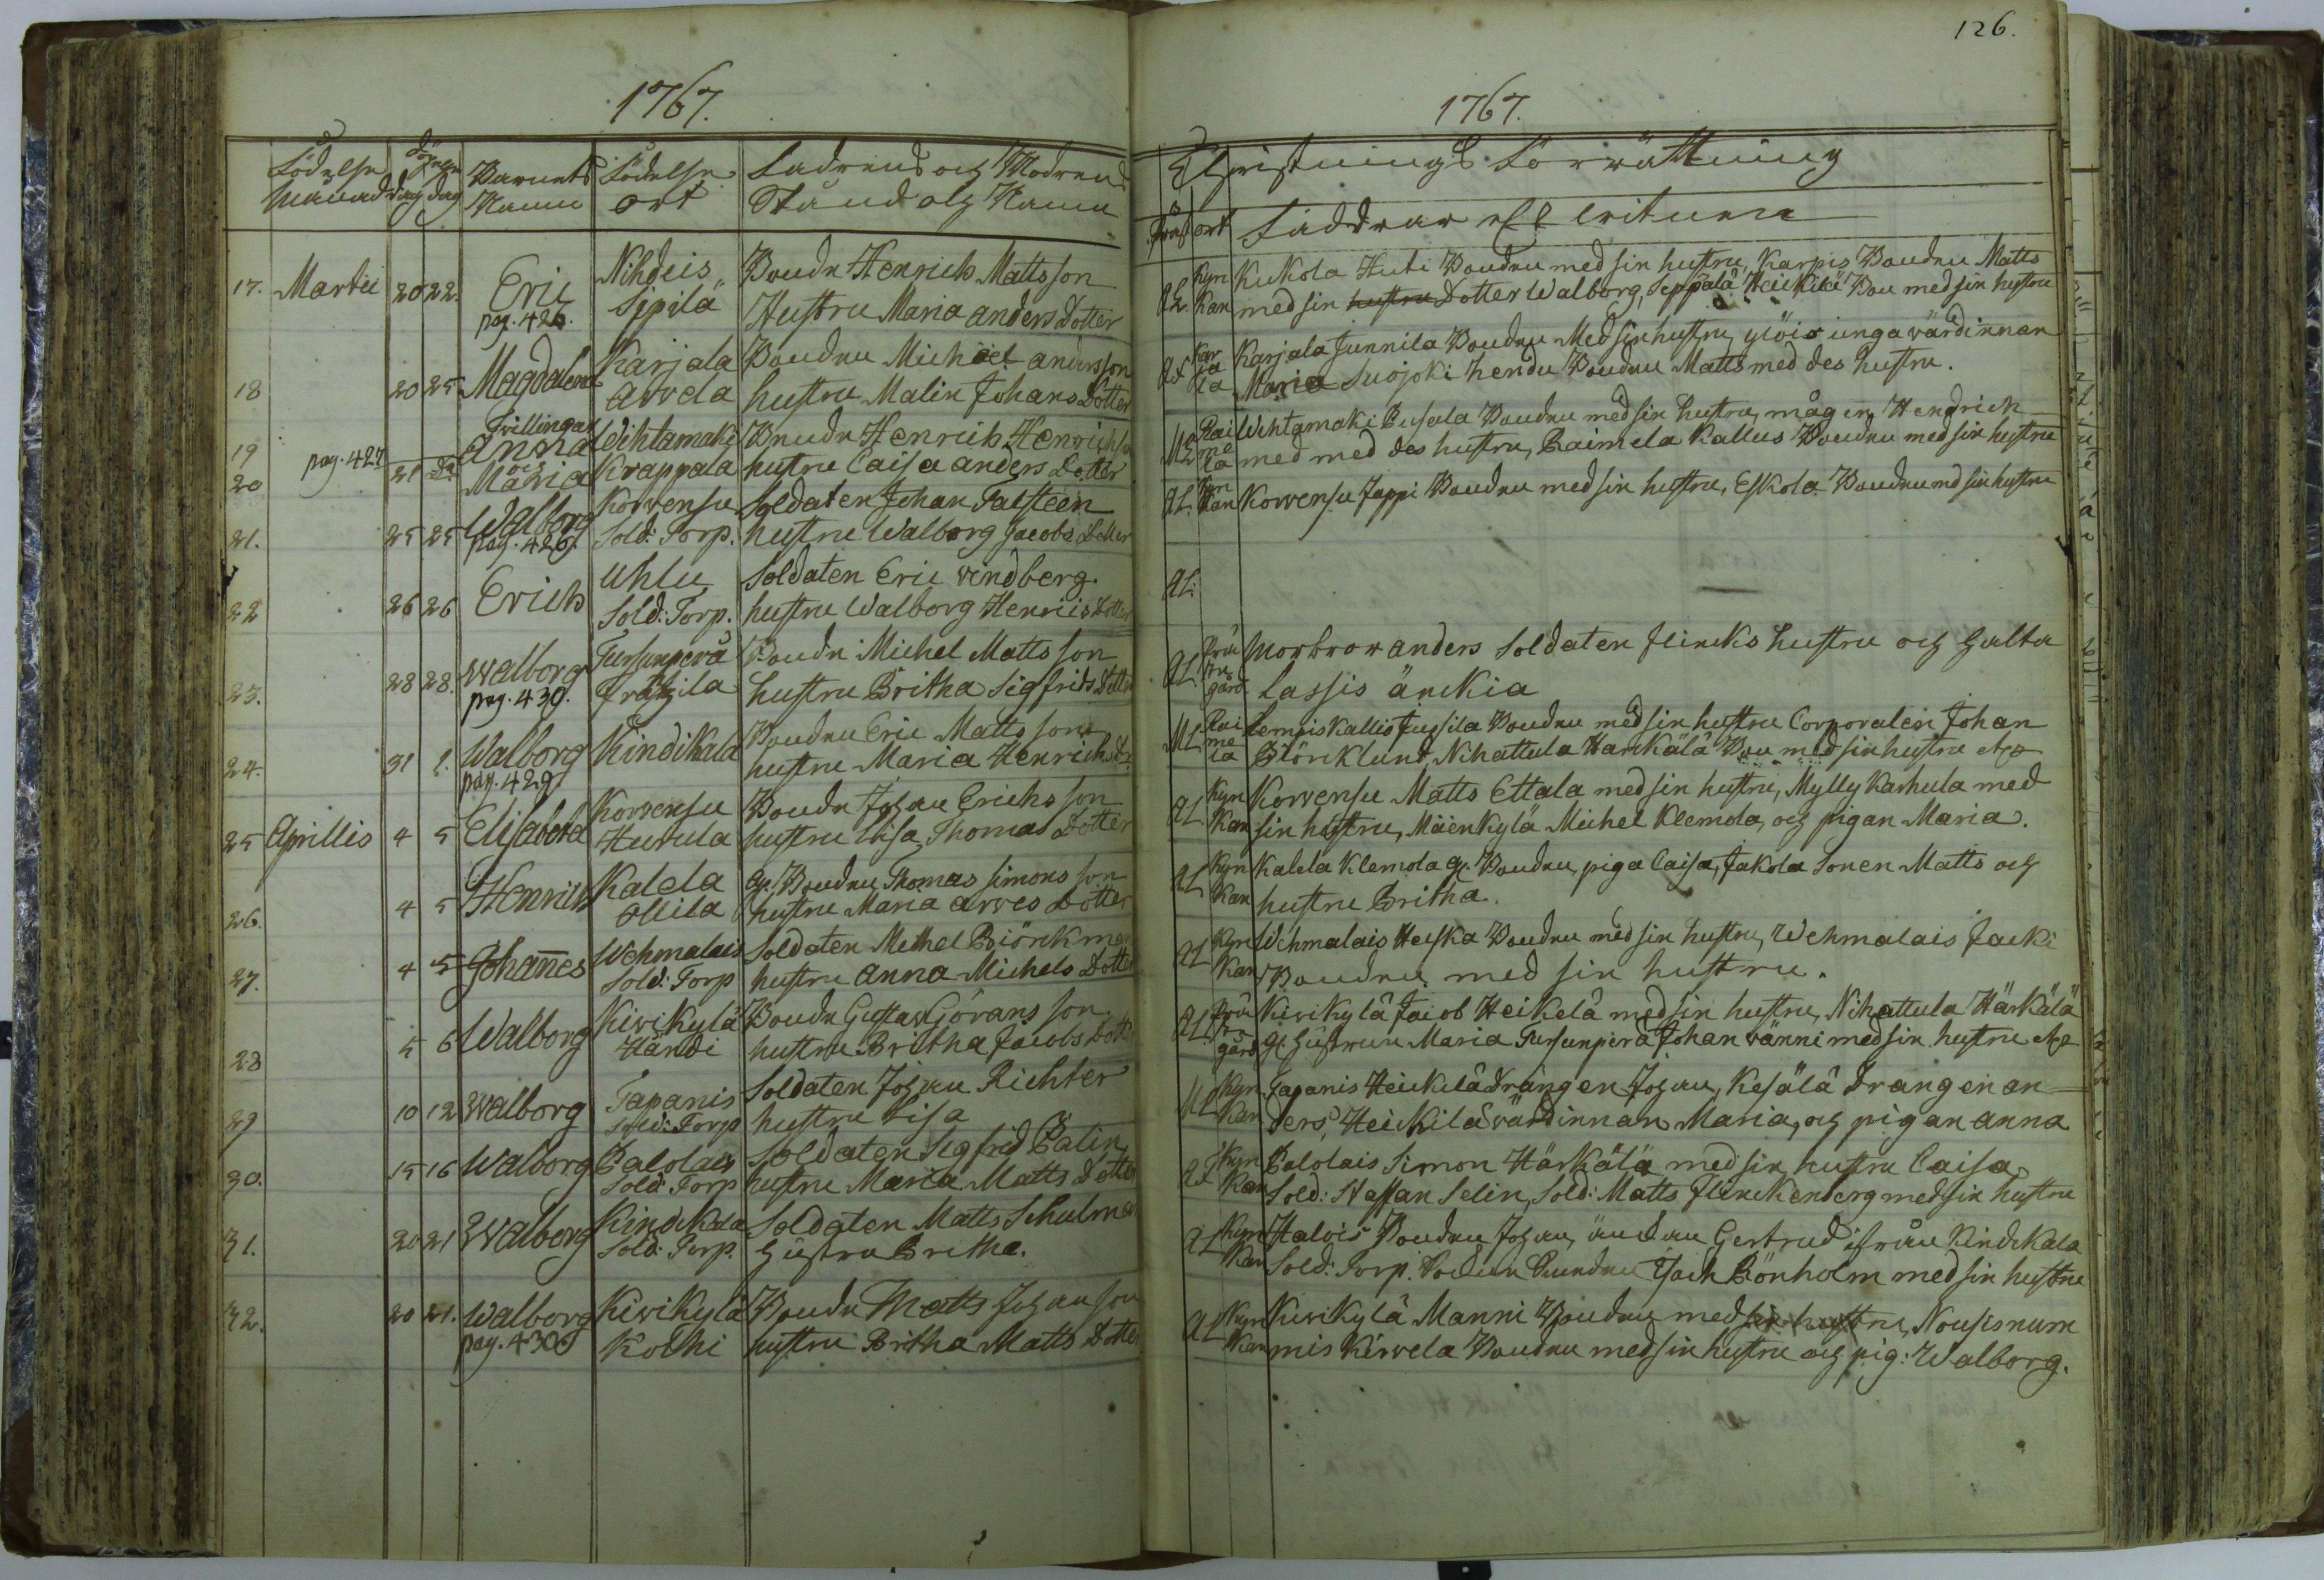 126.
1767.
Födelse
månad
dag
döpelse
dag
Barnets
Namn
Födelse
ort
Fadrens och Modrens
Stånd och Namn
17. Martii 20 22. Eric
pag. 426.
Nihdeis
Sipilä
Bonden Henrich Mattsson
Hustru Maria anders Dotter
18 20 25 Magdalena
Karjala
arvela
Bonden Michael anders son
hustru Malin Johans Dotter
19
20
pag. 427
21
Tvillingar
Anna
och
Maria
Wehtamaki
Krappala
Bonden Henrich Henrichson
hustru Caisa anders Dotter
21. 25 25 Walborg
pag. 426.
Korvensu
Sold: Torp.
Soldaten Johan Falsteen
hustru Walborg Jacobs Dotter
22 26 26 Erich
Uhlu
Sold: Torp.
Soldaten Eric vindberg.
hustru Walborg Henrics Dotter
23. 28 28. Walborg
pag. 430.
Tursunperä
Bonden Michel Matts son
hustru Britha Sigfrids Dotter
24. 31 1. Walborg
pag. 429
Kindikala
Bonden Eric Matts son
hustru Maria Henrichs
25 Aprillis 4 5 Elisabeta
Korvensu
Bonden Johan Erichs son
hustru Lisa Thomas Dotter
26. 4 5 Henrich
Kalela
Ollila
Bonden Thomas Simons son
hustru Maria arves Dotter
27. 4 5 Johannes
Wehmalais
Sold: Torp
Soldaten Michel Biörckman
hustru anna Michels Dotter
28 5 6 Walborg
Kivikylä
Händi
Bonden Gustav Görans son
hustru Britha Jacobs Dotter
29 10 12 Walborg
Tapanis
Sold: Torp
Soldaten Johan Richter
hustru Lisa
30. 15 16 Walborg
Palolais
Sold: Torp
Soldaten Sigfrid Palin
hustru Maria Matts Dotter
31. 20 21 Walborg
Kindikala
Sold: Torp.
Soldaten Matts Schulman
hustru Britha.
32. 20 21. Walborg
pag. 430
Kivikylä
Kolhi
Bonden Matts Johan son
hustru Britha Matts Dotter
1767.
Christnings Förrättning
Präst ort Faddrar eller vitnen
AL. Kyr
kan
Kukola Huti Bonden med sin hustru, Karpis Bonden Matts
med sin hustru Dotter Walborg, Seppälä Heickilä Bon med sin hustru
Kar
ja
la
Karjala Junnila Bonden Med sin hustru, ylöis unga värdinnan
Maria Suojoki Hendu Bonden Matts med des hustru.
Rai
me
la
Wehtamaki Busala Bonden med sin hustru, mågen Hendrich
med med des hustru, Raimela Kallus Bonden med sin hustru
AL. Kyr
kan
Korvensu Jappi Bonden med sin hustru, Eskola Bonden med sin hustru
AL.
AL. Prä
ste
gård
Morbror anders Soldaten flincks hustru och
Lassis änckia
ML Rai
me
la
Lempis Kallis Jussila Bonden med sin hustru Corporalen Johan
Biörcklund, Nihattula Harckälä Bon med sin hustru
AL Kyr
kan
Korvensu Matts Ettala med sin hustru, Mylly Karhula med
sin hustru, Mäenkylä Michel Klemola, och pigan Maria.
AL Kyr
kan
Kalela Klemola Bonden, piga Caisa, Jakola Sonen Matts och
hustru Britha.
AL Kyr
kan
Wehmalais Heiska Bonden med sin hustru, Wehmalais Jacki
Bonden med sin hustru.
AL. Prä
ste
gård
Kivikylä Jacob Heikelä med sin hustru, Nihattula Härkälä
hustrun Maria Tursunperä Johan vänni med sin hustru
ML Kyr
kan
Tapanis Heickilä drängen Johan, Kesälä drangen an
ders, Heickilä värdinnan Maria, och pigan anna
AL Kyr
kan
Palolais Simon Härkälä med sin hustru Caisa
Sold: Staffan Selin, Sold: Matts Flinckenberg med sin hustru
AL Kyr
kan
Halois Bonden Johan, änckan Gertrud ifrån Kindikala
Sold: Torp. Isach Rönholm med sin hustru
AL Kyr
kan
Kivikylä Manni Bonden med sin hustru, Nousisnum
mis Kirvela Bonden med sin hustru och pig: Walborg.